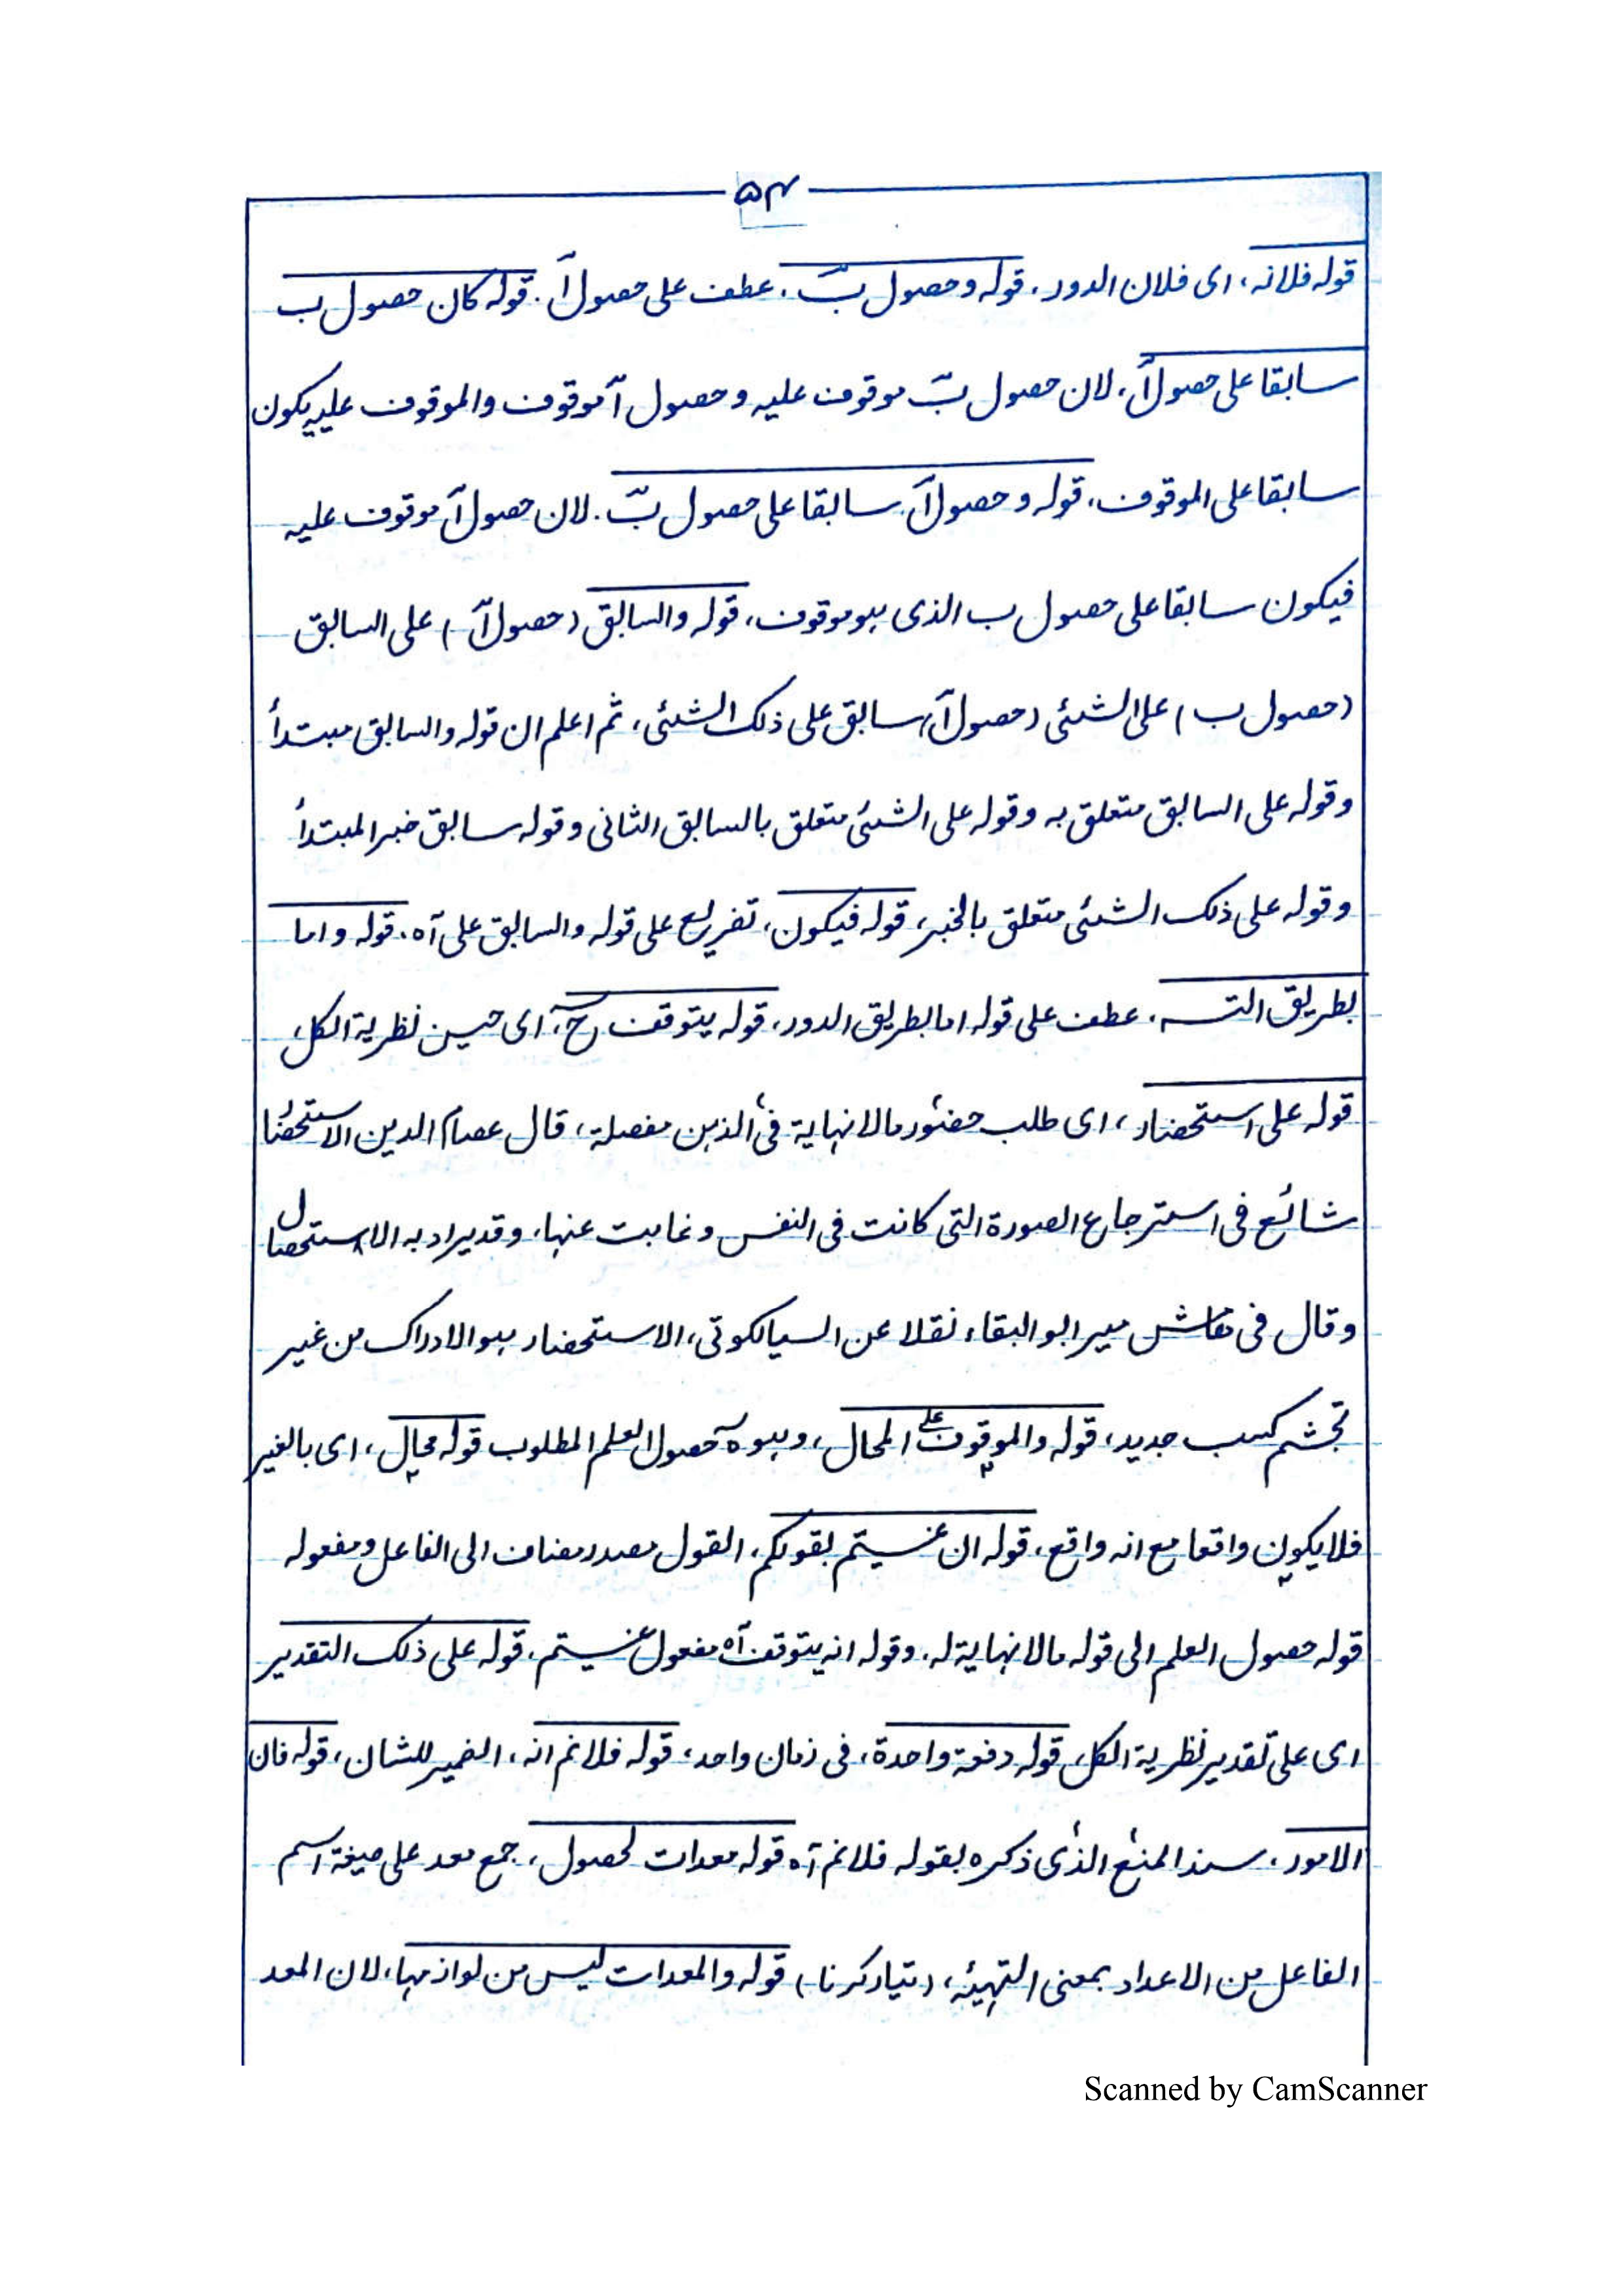 ۵۴
قوله فلانه، ای فلان الدور، قوله وحصول بٓ، عطف علی حصول آ، قوله کان حصول ب
سابقا علی حصول آ، لان حصول بٓ موقوف علیه وحصول آ موقوف والموقوف علیه یکون
سابقا علی الموقوف، قوله وحصول آ سابقا علی حصول بٓ، لان حصول آ موقوف علیه
فیکون سابقا علی حصول ب الذی ہو موقوف، قوله والسابق (حصول آ) علی السابق
(حصول ب) علی الشئی (حصول آ) سابق علی ذلک الشئی، ثم اعلم ان قوله والسابق مبتدأ
وقوله علی السابق متعلق به وقوله علی الشئی متعلق بالسابق الثانی وقوله سابق خبر المبتدأ
وقوله علی ذلک الشئی متعلق بالخبر، قوله فیکون، تفریع علی قوله والسابق علی آه، قوله واما
بطریق التسـ، عطف علی قوله اما بطریق الدور، قوله یتوقف حٓ، ای حین نظریة الکل،
قوله علی استحضار، ای طلب حضور مالانہایة فی الذہن مفصلة، قال عصام الدین الاستحضا
شائع فی استرجاع الصورة التی کانت فی النفس وغابت عنہا، وقد یراد به الاستحصال
وقال فی میر ابو البقاء نقلا عن السیالکوتی، الاستحضار ہو الادراک من غیر
تجشم کسب جدید، قوله والموقوف علی المحال، وہو حصول العلم المطلوب قوله محال، ای بالغیر
فلا یکون واقعا مع انه واقع، قوله ان عنیتم بقولکم، القول مصدر مضاف الی الفاعل ومفعوله
قوله حصول العلم الی قوله مالانہایة له، وقوله انه یتوقف آه مفعول عنیتم، قوله علی ذلک التقدیر
ای علی تقدیر نظریة الکل، قوله دفعة واحدة، فی زمان واحد، قوله فلانم انه، الضمیر للشان، قوله فان
الامور، سند المنع الذی ذکره بقوله فلانم آه قوله معدات لحصول، جمع معد علی صیغة اسم
الفاعل من الاعداد بمعنی التہیئه، (تیار کرنا) قوله والمعدات لیس من لوازمہا، لان المعد
Scanned by CamScanner